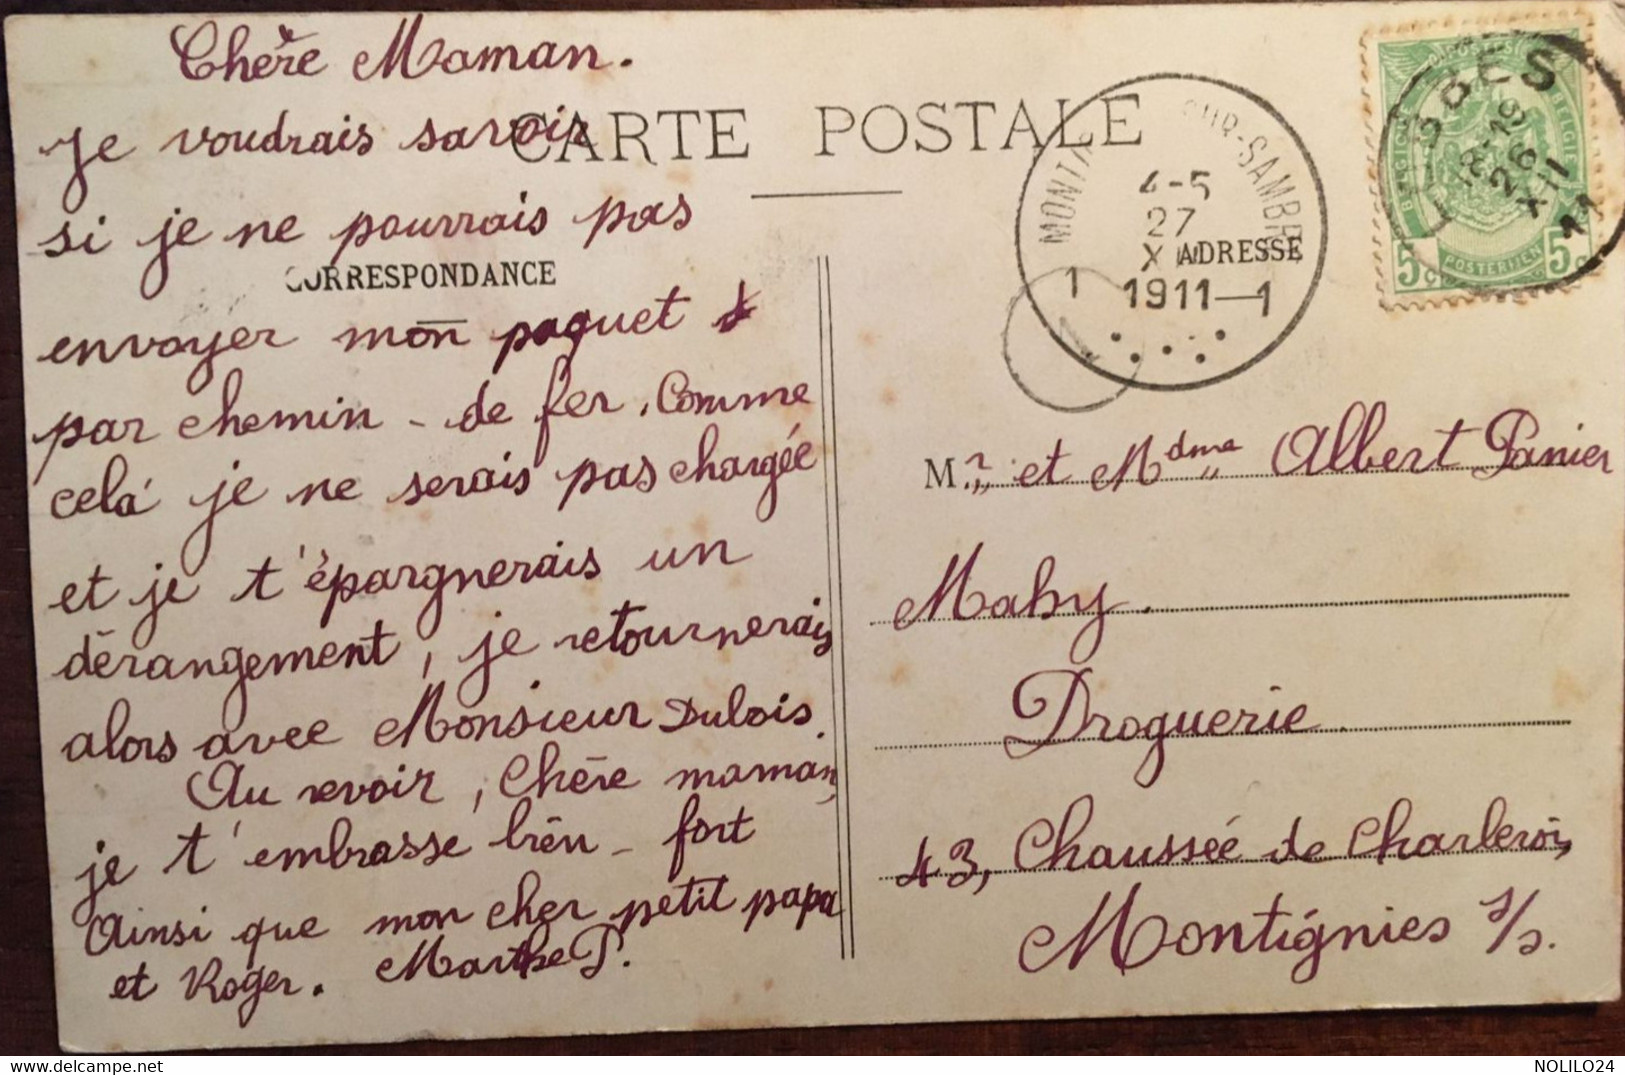 Chère Maman.
CARTE POSTALE
je voudrais savoir
si je ne pourrais pas
CORRESPONDANCE
envoyer mon paquet
par chemin - de fer. Comme
celà je ne serais pas chargée
et je t'épargnerais un
dérangement, je retournerais
alors avec Monsieur Dubois.
Au revoir, Chère maman,
je t'embrasse bien - fort
Ainsi que mon cher petit papa
et Roger. Marthe P.
SUR-SAMBRE
4-5
27
X
1911-1
1
ADRESSE
BELGIQUE
BELGIE
POSTERIJEN
5c
5c
18-19
26
XII
11
Mr et Mdme Albert Panier
Mahy.
Droguerie.
43, Chaussée de Charleroi,
Montignies s/s.
NOLILO24